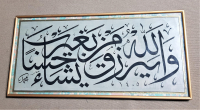 والله يرزق من يشاء بغير حساب